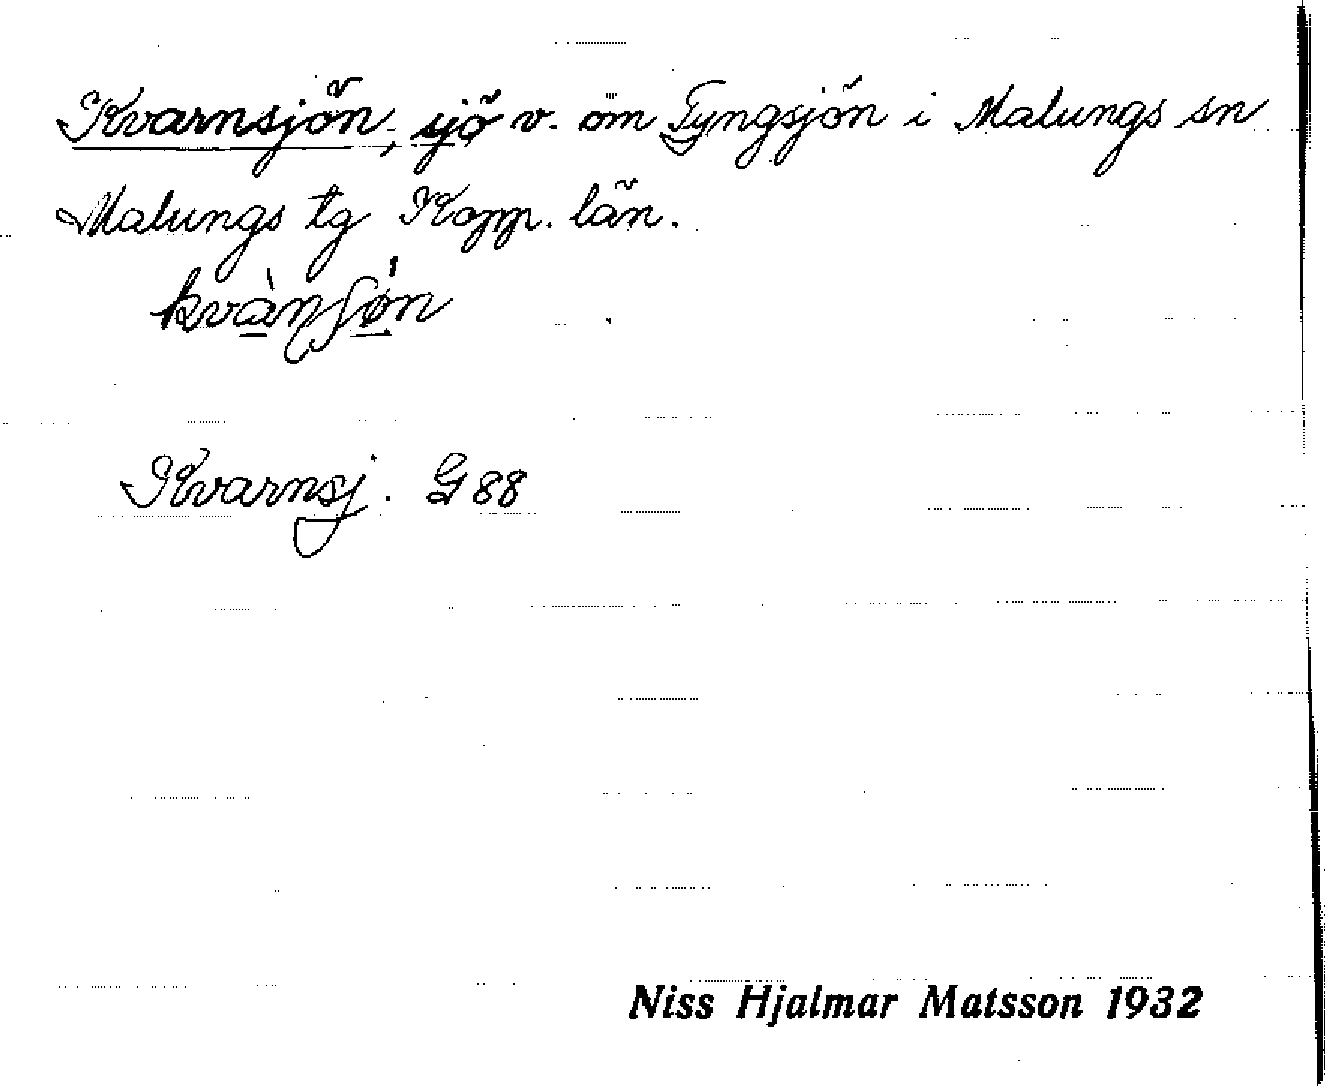 Kvarnsjön, sjö v. om Tyngsjön i Malungs sn
Malungs tg Kopp. län.
Kvarnsj. G 88
Niss Hjalmar Matsson 1932